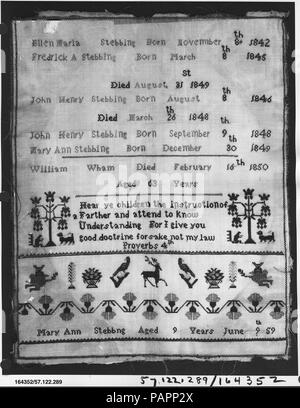 Ellen Maria Stebbing Born November 8th 1842
Fredrick A Stebbing Born March 8th 1845
Died August 31st 1849
John Henry Stebbing Born August 8th 1846
Died March 26th 1848
John Henry Stebbing Born September 9th 1848
Mary Ann Stebbing Born December 30 1849
William Wham Died February 16th 1850
Aged 63 Years
Hear ye children the Instruction of
a Farther and attend to know
Understanding For I give you
good doctrine forsake not my law
Proverbs 4th
Mary Ann Stebbng Aged 9 Years June 9th 59
164352/57.122.289
57.122.289/164352
alamy
Image ID: PAPP2X
www.alamy.com